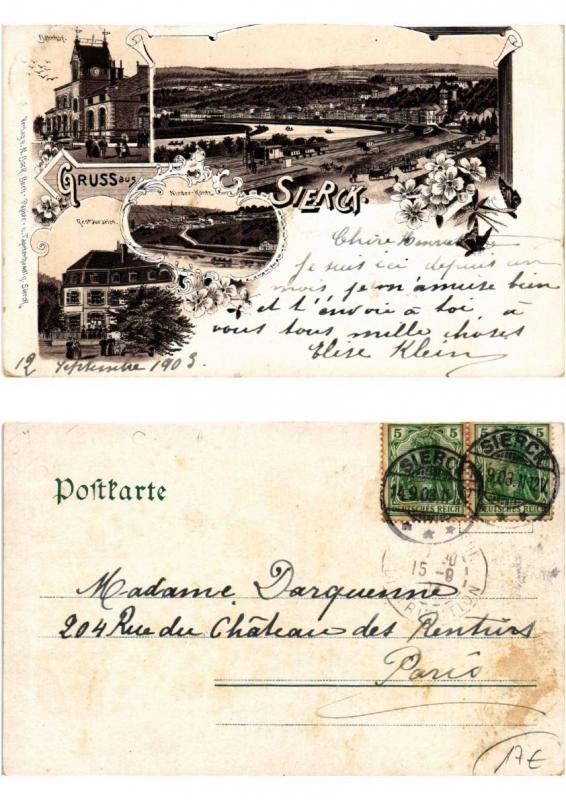 Bahnhof.
GRUSS aus
SIERCK.
Nieder-Kontz
Restauration
Chère
Je suis ici depuis un
mois, je m'amuse bien
et t'envoie à toi, à
vous tous mille choses
Elise Klein
12 Septembre 1903.
5 5
SIERCK SIERCK
14.9.03.11
9.03.11-12V.
DEUTSCHES REICH DEUTSCHES REICH
Postkarte
15-9
Madame Darquenne
204 Rue du Château des Rentiers
Paris
17€